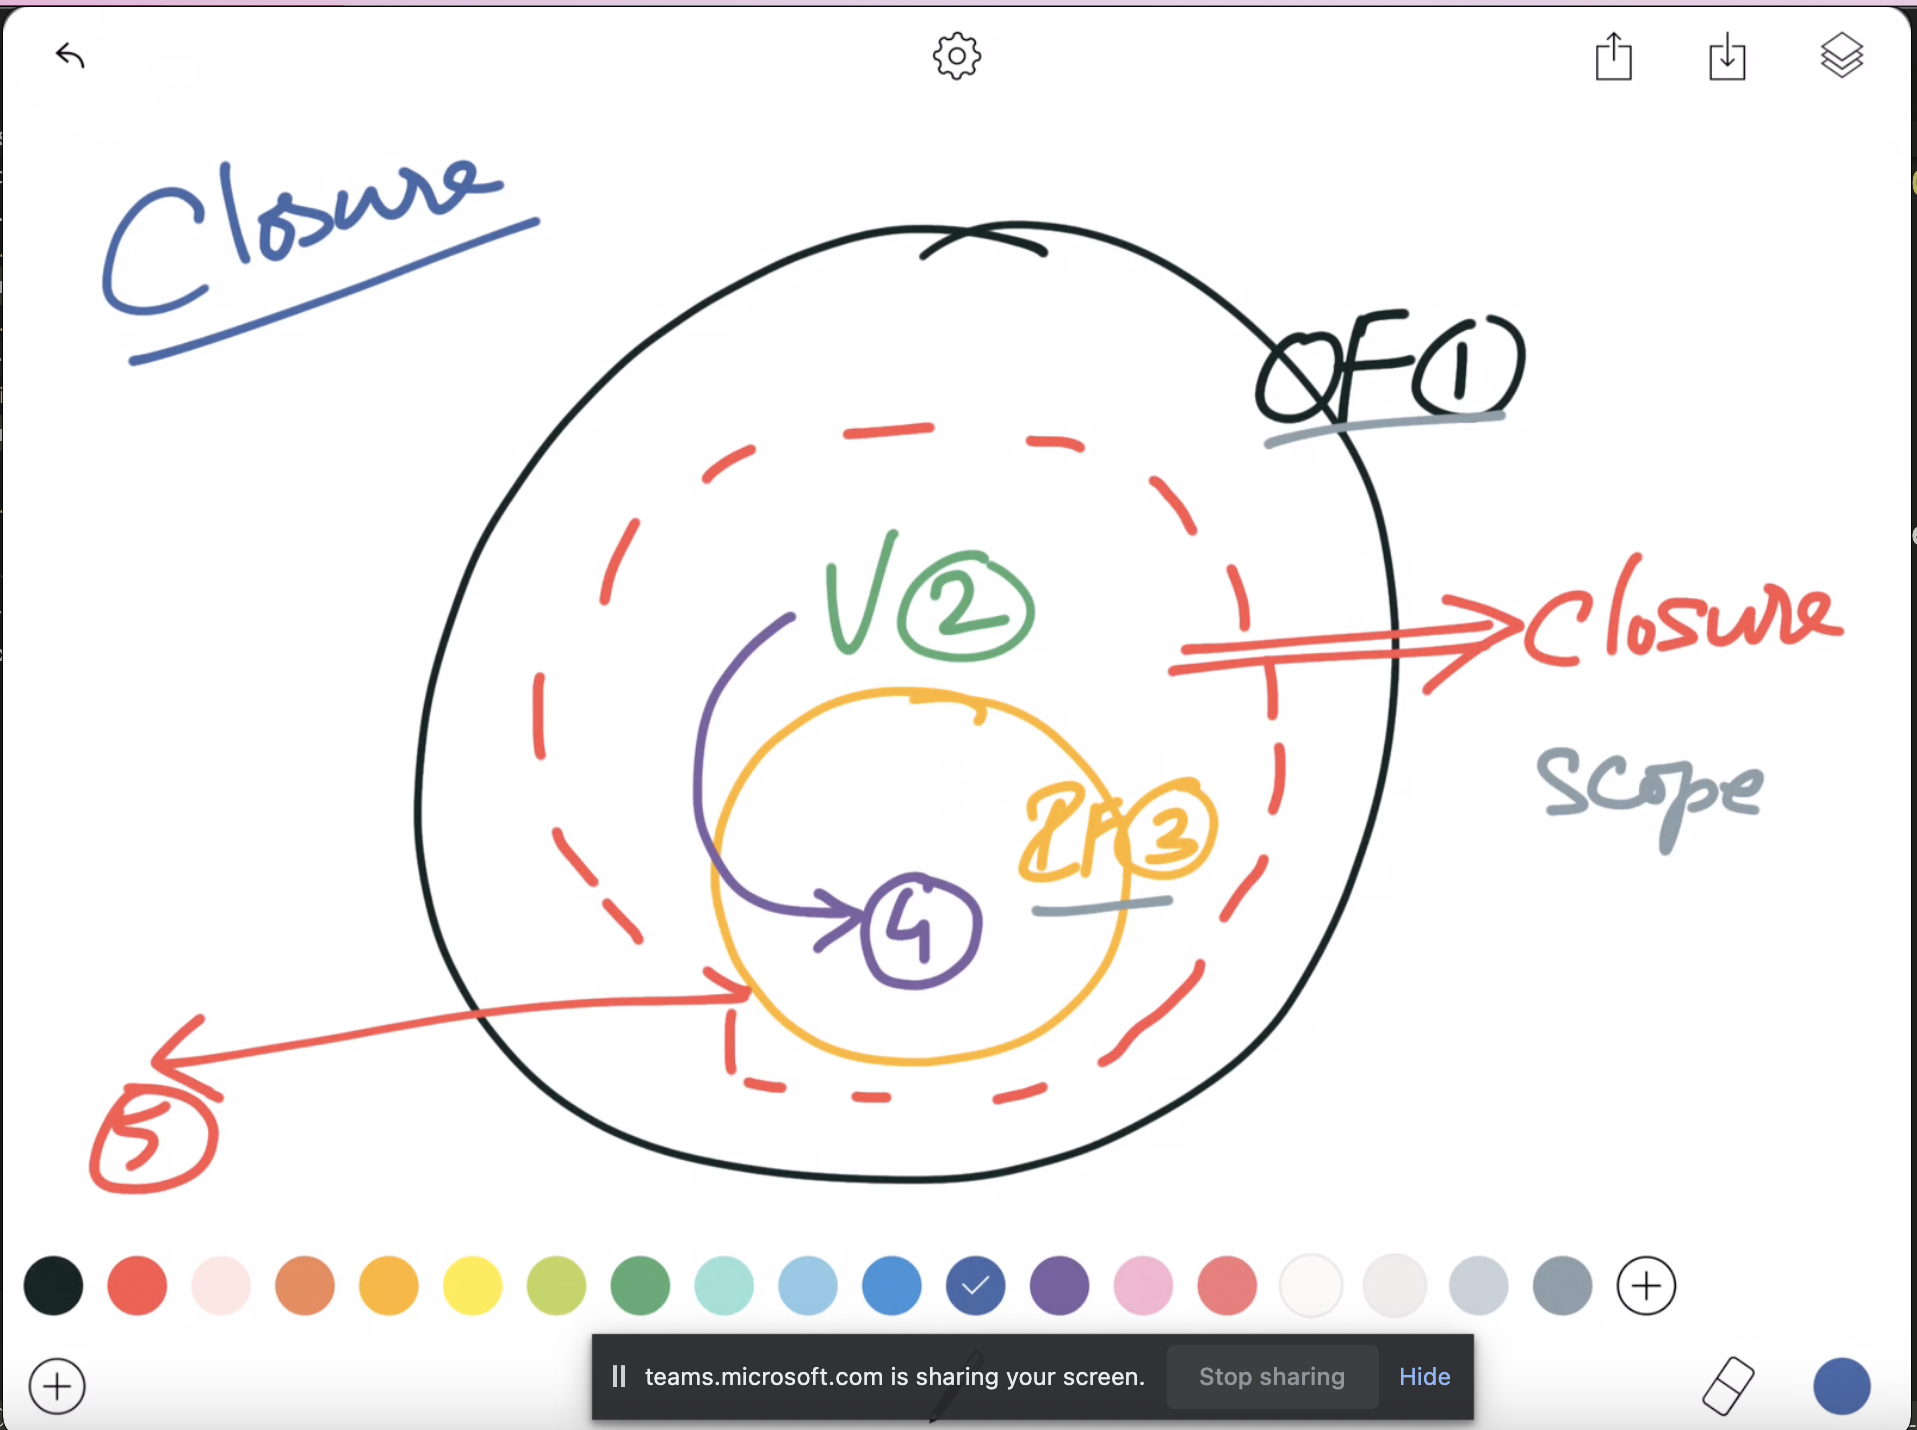 Closure
OF 1
V 2
Closure
scope
IF 3
4
5
teams.microsoft.com is sharing your screen.
Stop sharing
Hide